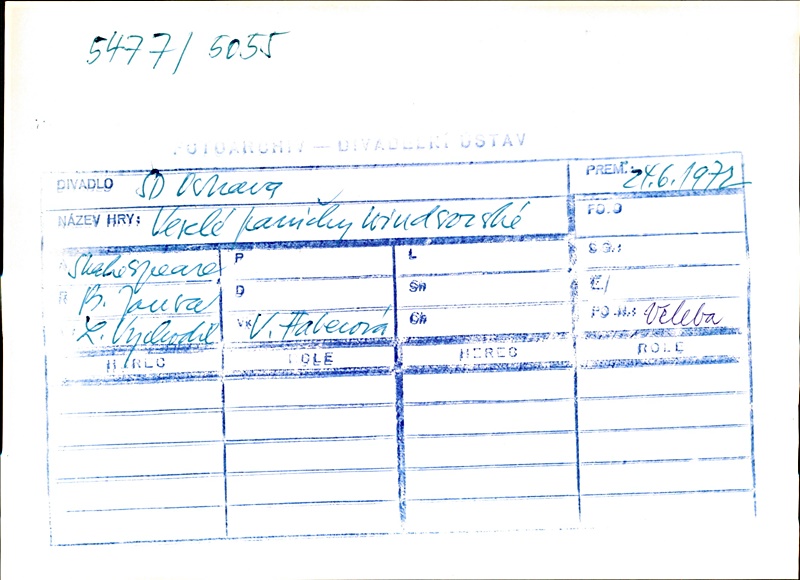 5477/5055
FOTOARCHIV – DIVADELNÍ ÚSTAV
DIVADLO SD Ostrava PREM.: 24.6.1972
NÁZEV HRY: Veselé paničky windsorské FO.O
Shakespeare P L SG.:
R B. Jansa D Sn Č/
L. Vychodil VK V. Haberová Ch PO.N.: Veleba
HEREC ROLE HEREC ROLE